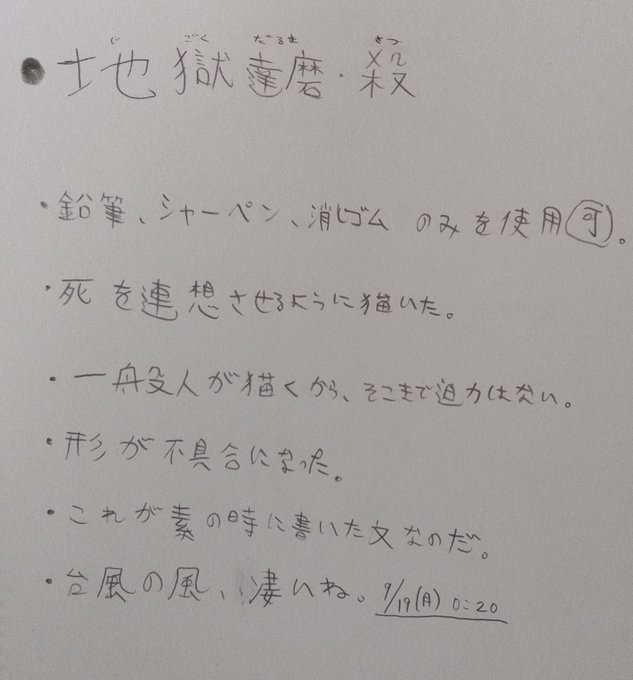 じ ごく だるま さつ
●地獄達磨・殺
・鉛筆、シャーペン、消しゴム のみを使用可。
・死を連想させるように描いた。
・一般人が描くから、そこまで迫力はない。
・形が不具合になった。
・これが素の時に書いた文なのだ。
・台風の風、凄いね。9/19(月) 0:20